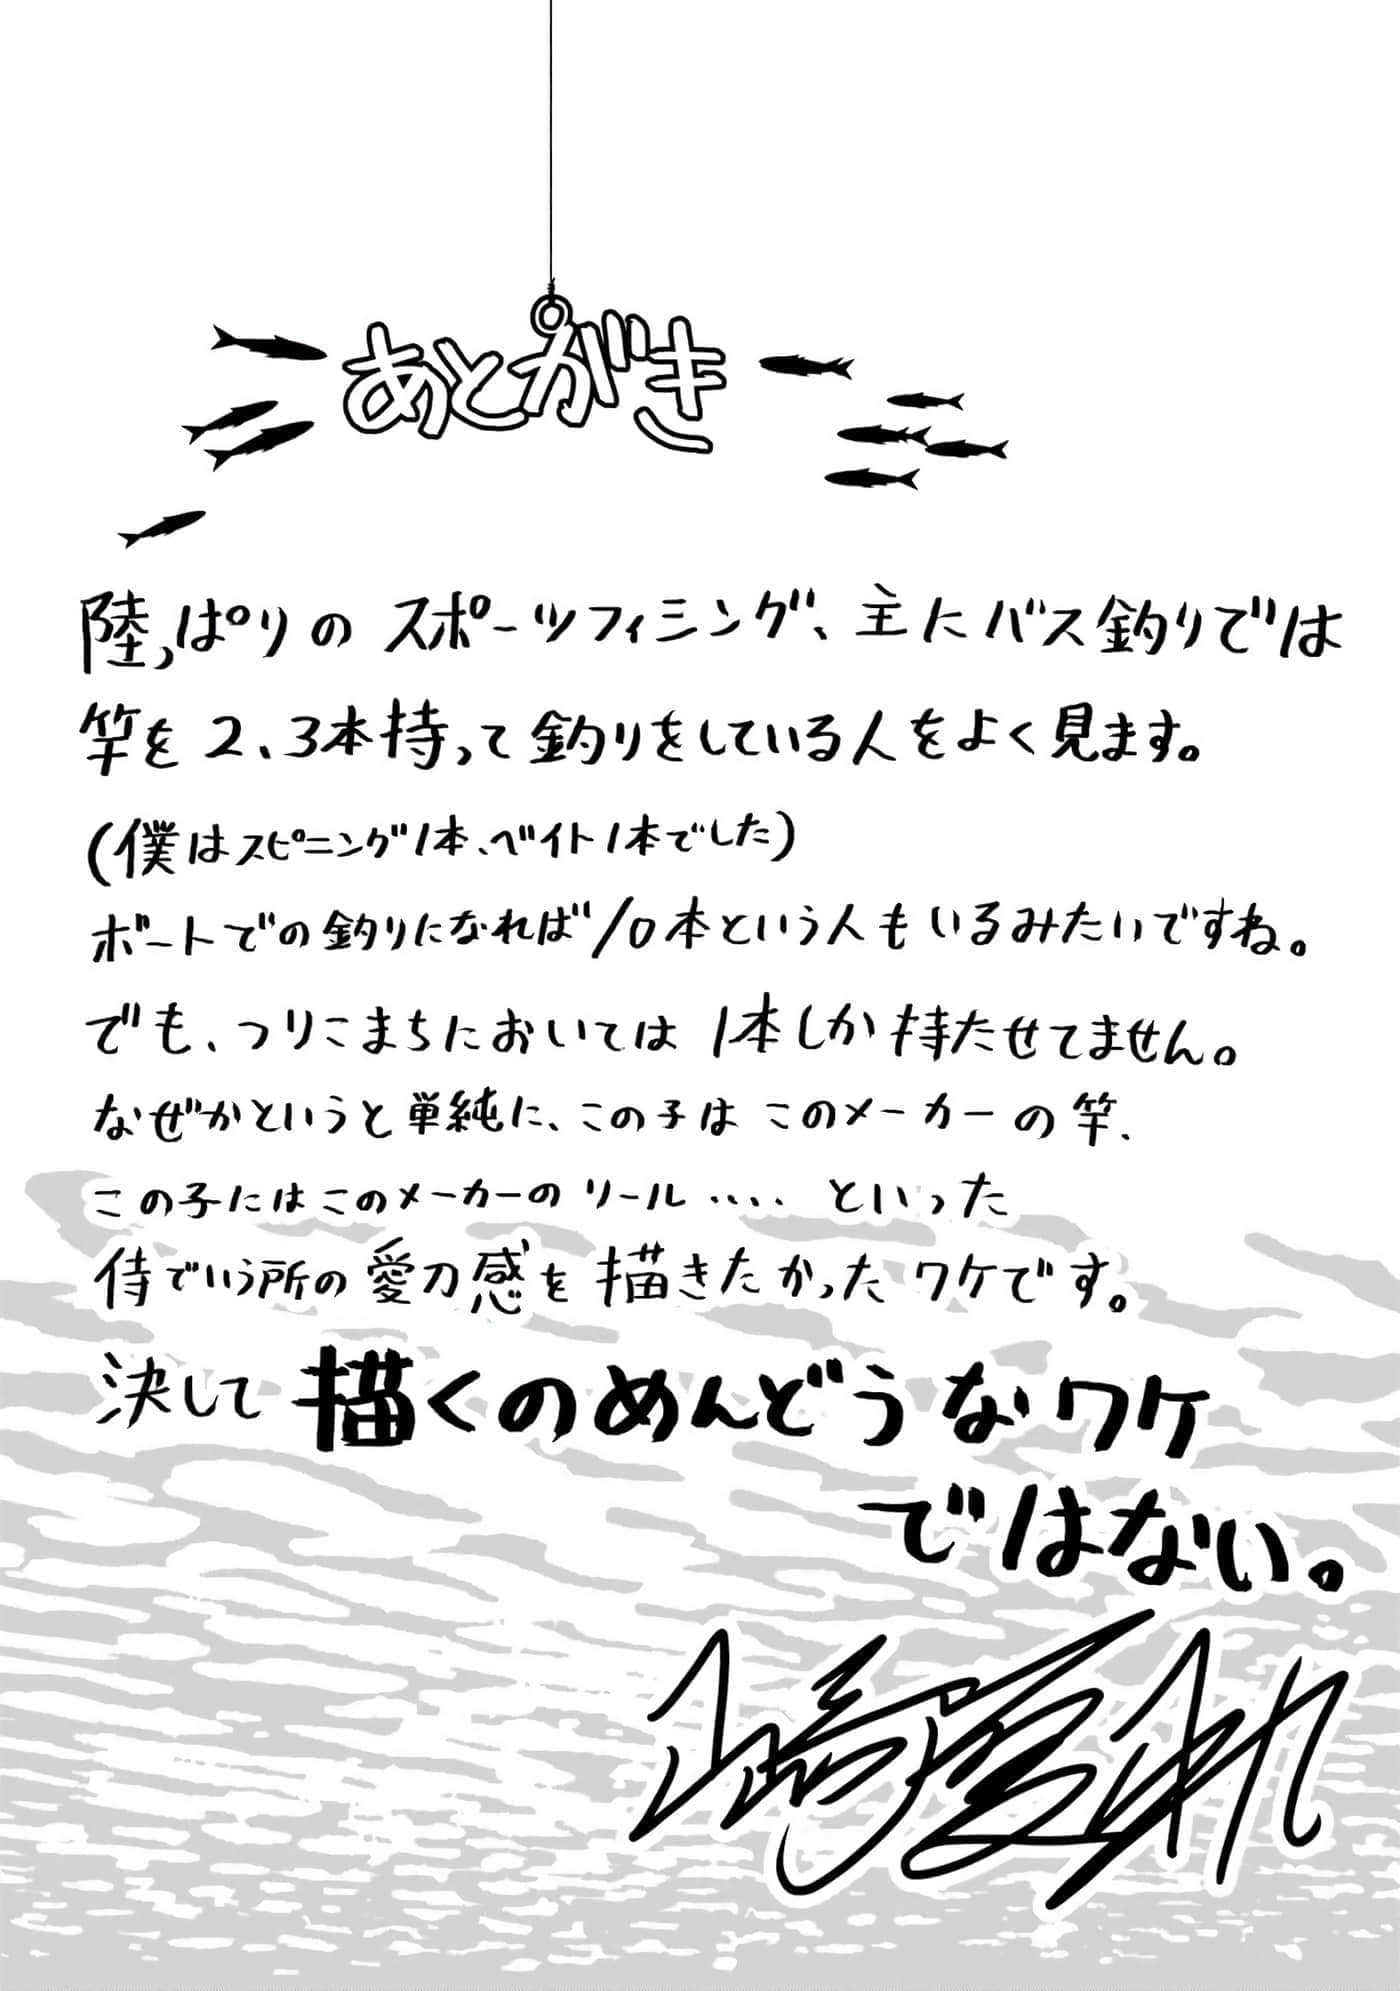 あとがき
陸っぱりの スポーツフィシング、主にバス釣りでは
竿を2、3本持って釣りをしている人をよく見ます。
(僕はスピニング1本、ベイト1本でした)
ボートでの釣りになれば10本という人もいるみたいですね。
でも、つりこまちにおいては 1本しか持たせてません。
なぜかというと単純に、この子は このメーカーの竿、
この子にはこのメーカーの リール・・・・ といった
侍でいう所の愛刀感を描きたかったワケです。
決して 描くのめんどうなワケ
ではない。